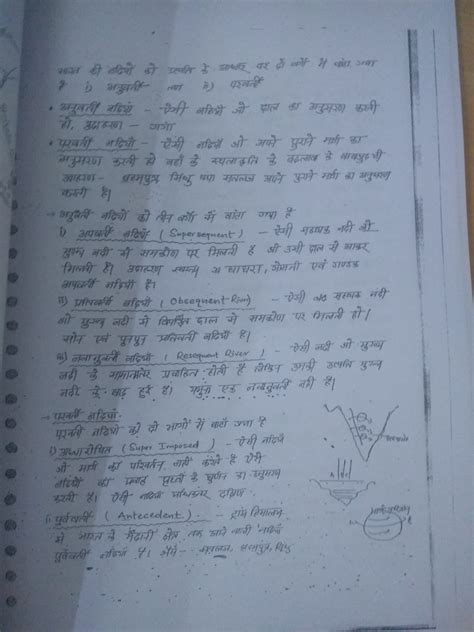 भारत की नदियों को उत्पत्ति के आधार पर दो वर्गों में बांटा गया
है i) अनुवर्ती तथा b) परवर्ती
• अनुवर्ती नदियाँ - ऐसी नदियाँ जो ढाल का अनुसरण करती
हो, उदाहरण - गंगा
• परवर्ती नदियाँ - ऐसी नदियाँ जो अपने पुराने मार्ग का
अनुसरण करती हो वहाँ के स्थलाकृति के बदलाव के बावजूद भी
उदाहरण - ब्रह्मपुत्र सिंधु तथा सतलज अपने पुराने मार्ग का अनुसरण
करती है।
→ अनुवर्ती नदियों को तीन वर्गों में बांटा गया है
i) अपवर्ती नदियाँ (Supersequent) - ऐसी सहायक नदी जो
मुख्य नदी से समकोण पर मिलती है जो उसी ढाल से आकर
मिलती है। उदाहरण स्वरूप घाघरा, गोमती एवं गण्डक
अपवर्ती नदियाँ है।
ii) प्रतिवर्ती नदियाँ (Obsequent River) - ऐसी सहायक नदी
जो मुख्य नदी में विपरित ढाल से समकोण पर मिलती हो।
सोन एवं पुनपुन प्रतिवर्ती नदियाँ है।
iii) नवानुवर्ती नदियाँ (Resequent River) - ऐसी नदी जो मुख्य
नदी के समानान्तर प्रवाहित होती है लेकिन उनकी उत्पत्ति मुख्य
नदी के बाद हुई है। यमुना एक नवानुवर्ती नदी है।
→ परवर्ती नदियाँ
परवर्ती नदियों को दो भागों में बांटा गया है
i) अध्यारोपित (Super Imposed) - ऐसी नदियाँ
जो मार्ग का परिवर्तन नहीं करते है ऐसी
नदियों का
करती है। ऐसी नदियाँ
ii) पूर्ववर्ती (Antecedent) - हिमालय
से भारत के मैदानी क्षेत्र तक आने वाली नदियाँ
पूर्ववर्ती नदियाँ है। जैसे - सतलज, ब्रह्मपुत्र, सिंधु
A C